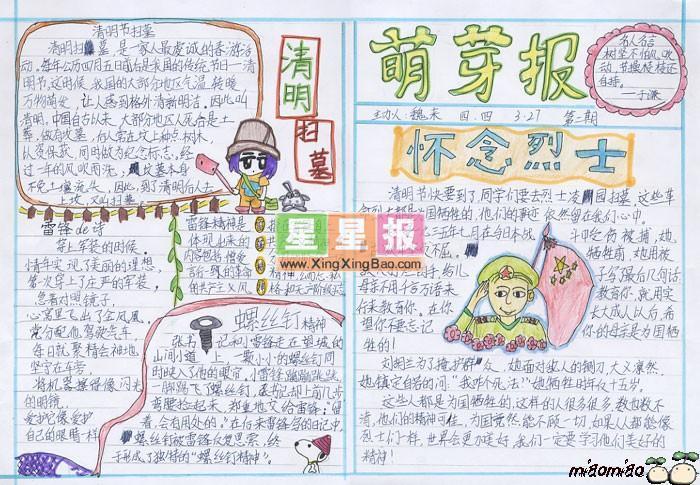 清明节扫墓
清明扫墓，是一家人最虔诚的春游活
动。每年公历四月五日前后是我国的传统节日—清
明节。这时候，我国的大部分地区气温转暖
万物萌发，让人感到格外清新明洁。因此叫
清明。中国自古以来，大部分地区人死后是土
葬，做为坟墓，后人常在坟上种点树木，
以资保荻，同时做为纪念标志。经
过一年的风吹雨洗，坟墓基本身
不免土壤流失，因此，到了清明后人去
上坟，又叫扫墓
清明
扫墓
萌芽报
名人名言
树坚不怕风吹
动，节操棱棱还
自持。
—于谦
主办人：魏来 四．四 3·27 第二期
怀念烈士
清明节快要到了，同学们要去烈士凌园扫墓，这些年
国牺牲的，他们的事迹依然留在我们心中。
三五年七月在今日本战斗中经伤被捕，她
不屈。牺牲前，她用被
千篇最后几句话
母亲不用千言万语来
教育你，就用实
行来教育你。在你
长大成人以后，希
望你不要忘记
你的母亲是为国牺
牲的！
刘胡兰为了掩护群众，她面对敌人的铡刀，大义凛然，
她镇定自若的问：“我咋个死法？”她牺牲时年仅十五岁。
这些人都是为国牺牲的，这样的人很多很多，数也数不
清，他们的精神可佳，为国竟然能不顾一切，如果人人都能像
烈士们一样，世界会更加美好，我们一定要学习他们美好的
精神！
雷锋de诗
穿上军装的时候。
情年实现了美丽的理想，
第一次穿上庄严的军装，
急着对明镜子，
心窝里飞出了金凤凰。
党分配他驾驶汽车，
每日就聚精会神地，
坚守在车旁，
将机器擦得像闪光
的明镜，
爱护它像爱护
自己的眼睛一样
雷锋精神是
体现出来的
内容包括憎爱
言行一致的革命
的共产主义风
星星报
www.XingXingBao.com
螺丝钉精神
张书记和小雷锋走在望城的
山间小道上，一颗小小的螺丝钉同
时映入了他的眼帘，小雷锋蹦蹦跳跳
一脚踢飞了螺丝钉，张书记却上前几步
弯腰捡起来，郑重地交给雷锋：留
着，会有用处的。在后来雷锋写的日记中，
螺丝钉被雷锋反复思索，终
于形成了独特的“螺丝钉精神”。
miaomiao